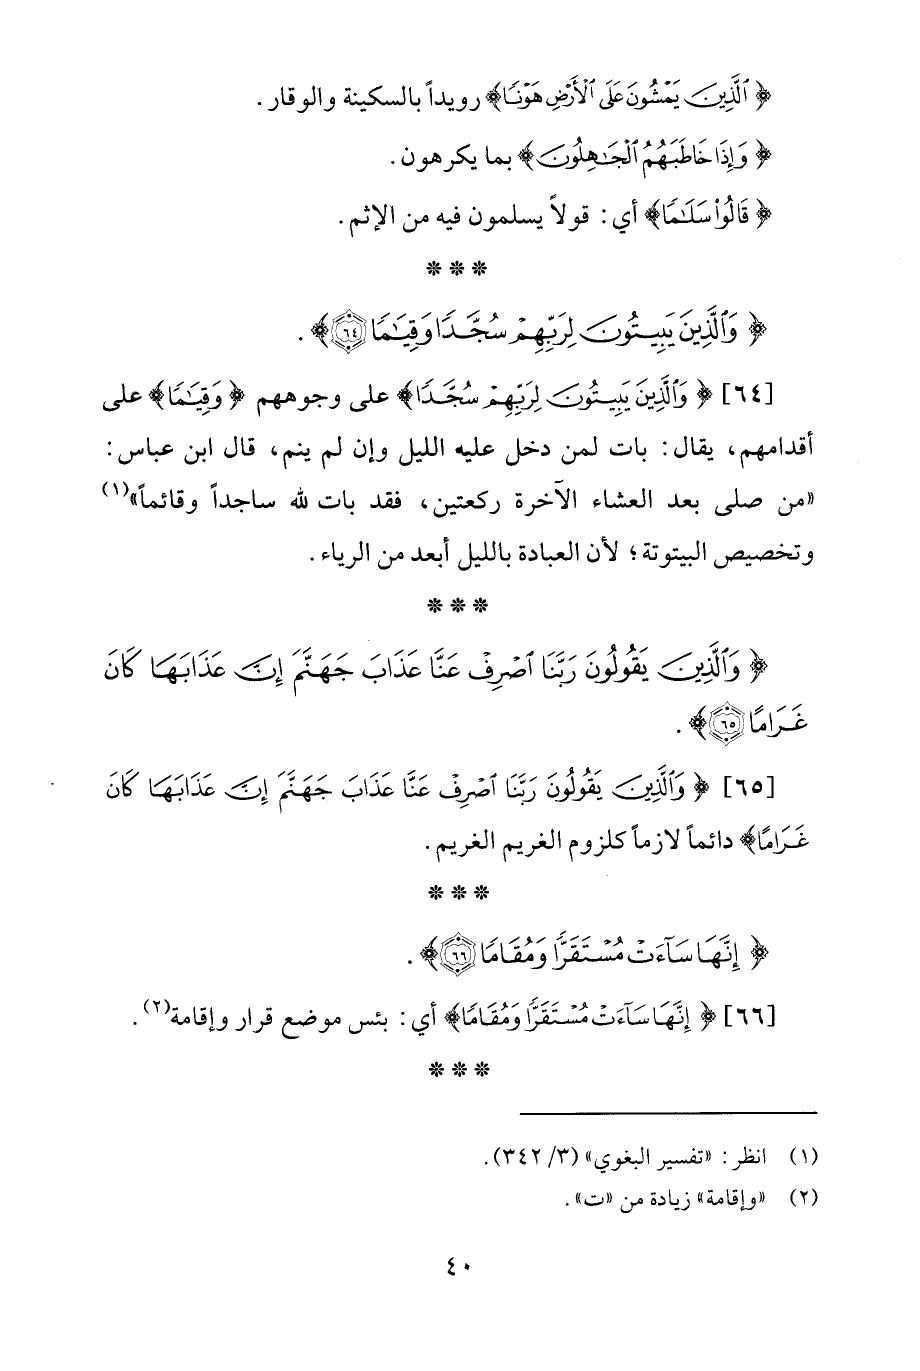 ﴿ ٱلَّذِينَ يَمْشُونَ عَلَى ٱلْأَرْضِ هَوْنًا﴾ رويداً بالسكينة والوقار.
﴿ وَإِذَا خَاطَبَهُمُ ٱلْجَـٰهِلُونَ ﴾ بما يكرهون.
﴿ قَالُوا۟ سَلَـٰمًا﴾ أي: قولاً يسلمون فيه من الإثم.
* * *
﴿ وَٱلَّذِينَ يَبِيتُونَ لِرَبِّهِمْ سُجَّدًا وَقِيَـٰمًا ٦٤﴾.
[٦٤] ﴿ وَٱلَّذِينَ يَبِيتُونَ لِرَبِّهِمْ سُجَّدًا﴾ على وجوههم ﴿ وَقِيَـٰمًا﴾ على
أقدامهم، يقال: بات لمن دخل عليه الليل وإن لم ينم، قال ابن عباس:
«من صلى بعد العشاء الآخرة ركعتين، فقد بات لله ساجداً وقائماً»(١)
وتخصيص البيتوتة؛ لأن العبادة بالليل أبعد من الرياء.
* * *
﴿ وَٱلَّذِينَ يَقُولُونَ رَبَّنَا ٱصْرِفْ عَنَّا عَذَابَ جَهَنَّمَ إِنَّ عَذَابَهَا كَانَ
غَرَامًا ٦٥﴾.
[٦٥] ﴿ وَٱلَّذِينَ يَقُولُونَ رَبَّنَا ٱصْرِفْ عَنَّا عَذَابَ جَهَنَّمَ إِنَّ عَذَابَهَا كَانَ
غَرَامًا﴾ دائماً لازماً كلزوم الغريم الغريم.
* * *
﴿ إِنَّهَا سَآءَتْ مُسْتَقَرًّا وَمُقَامًا ٦٦﴾.
[٦٦] ﴿ إِنَّهَا سَآءَتْ مُسْتَقَرًّا وَمُقَامًا﴾ أي: بئس موضع قرار وإقامة(٢).
* * *
(١) انظر: «تفسير البغوي» (٣/ ٣٤٢).
(٢) «وإقامة» زيادة من «ت».
٤٠